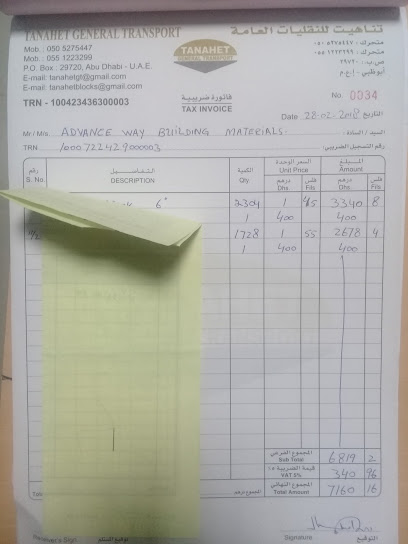 TANAHET GENERAL TRANSPORT
تناهيت للنقليات العامة
Mob. : 050 5275447
Mob. : 055 1223299
P.O. Box : 29720, Abu Dhabi - U.A.E.
E-mail: tanahetgt@gmail.com
E-mail: tanahetblocks@gmail.com
TRN - 100423436300003
TANAHET
GENERAL TRANSPORT
متحرك: ٠٥٠٥٢٧٥٤٤٧
متحرك: ٠٥٥١٢٢٣٢٩٩
ص.ب.: ٢٩٧٢٠
أبوظبي - إ.ع.م
فاتورة ضريبية
TAX INVOICE
No. 0034
Date 28-02-2018 التاريخ
Mr/M/s ADVANCE WAY BUILDING MATERIALS. السيد / السادة :
TRN 1000722429000003 رقم التسجيل الضريبي:
رقم التفاصيل الكمية سعر الوحدة المبلغ
S. No. DESCRIPTION Qty Unit Price Amount
درهم فلس درهم فلس
Dhs. Fils Dhs. Fils
6" 2304 1 45 3340 8
1 400 400
1728 1 55 2678 4
1 400 400
المجموع الفرعي
Sub Total 6819 2
قيمة الضريبة ٥٪
VAT 5% 340 96
المجموع النهائي
Total Amount 7160 16
المجموع درهم
Receiver's Sign. توقيع المستلم Signature التوقيع